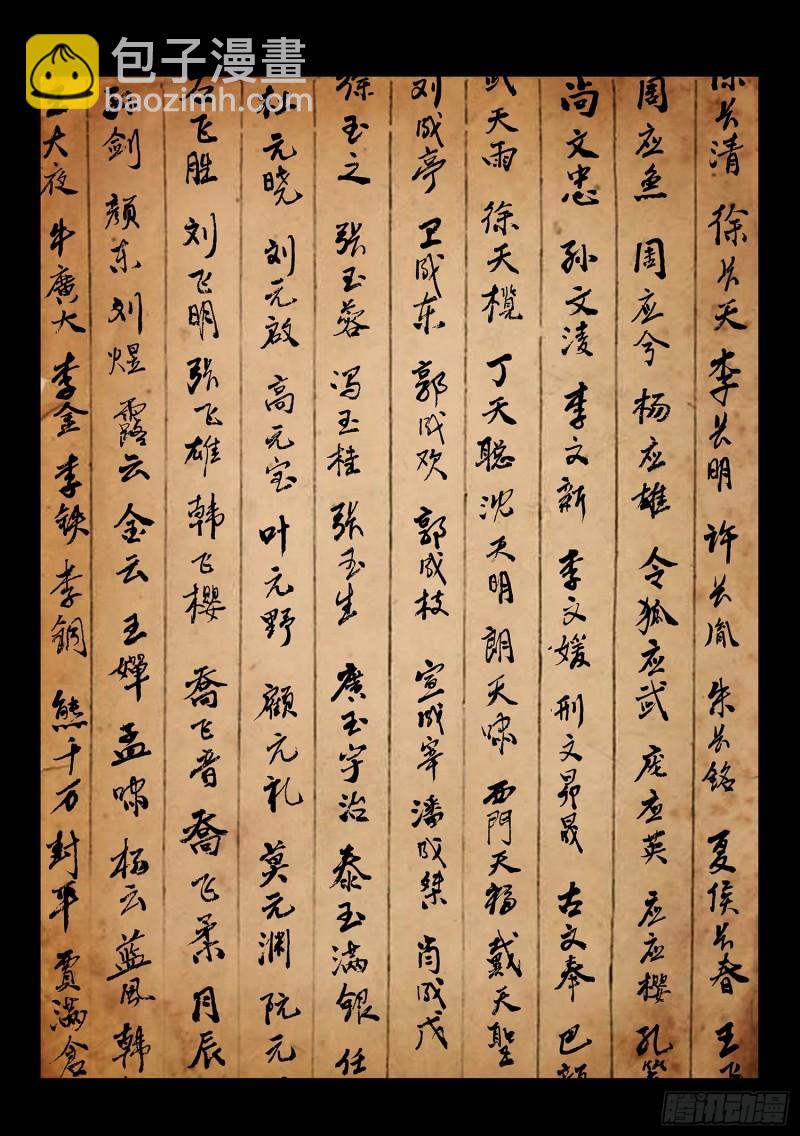 包子漫畫
baozimh.com
徐长清 徐长天 李长明 许长胤 朱长铭 夏侯长春 王
周应鱼 周应兮 杨应雄 令狐应武 庞应英 应应樱 孔
尚文忠 孙文凌 李文新 李文媛 刑文昴晟 古文奉 巴
武天雨 徐天榄 丁天聪 沈天明 朗天啸 西門天福 戴天聖
刘成亭 卫成东 郭成欢 郭成枝 宣成宰 潘成桀 肖成戊
徐玉之 张玉蓉 冯玉桂 张玉生 廣玉宇治 泰玉滿银 任
杜元晓 刘元啟 高元宝 叶元野 顧元礼 莫元渊 阮元
飞胜 刘飞明 張飞雄 韩飞樱 喬飞音 喬飞柔 月辰
剑 顏东 刘煜 露云 金云 王婵 孟啸 杨云 蓝凤 韓
大夜 牛廣大 李金 李铁 李铜 熊千万 封平 賈滿倉
腾讯动漫